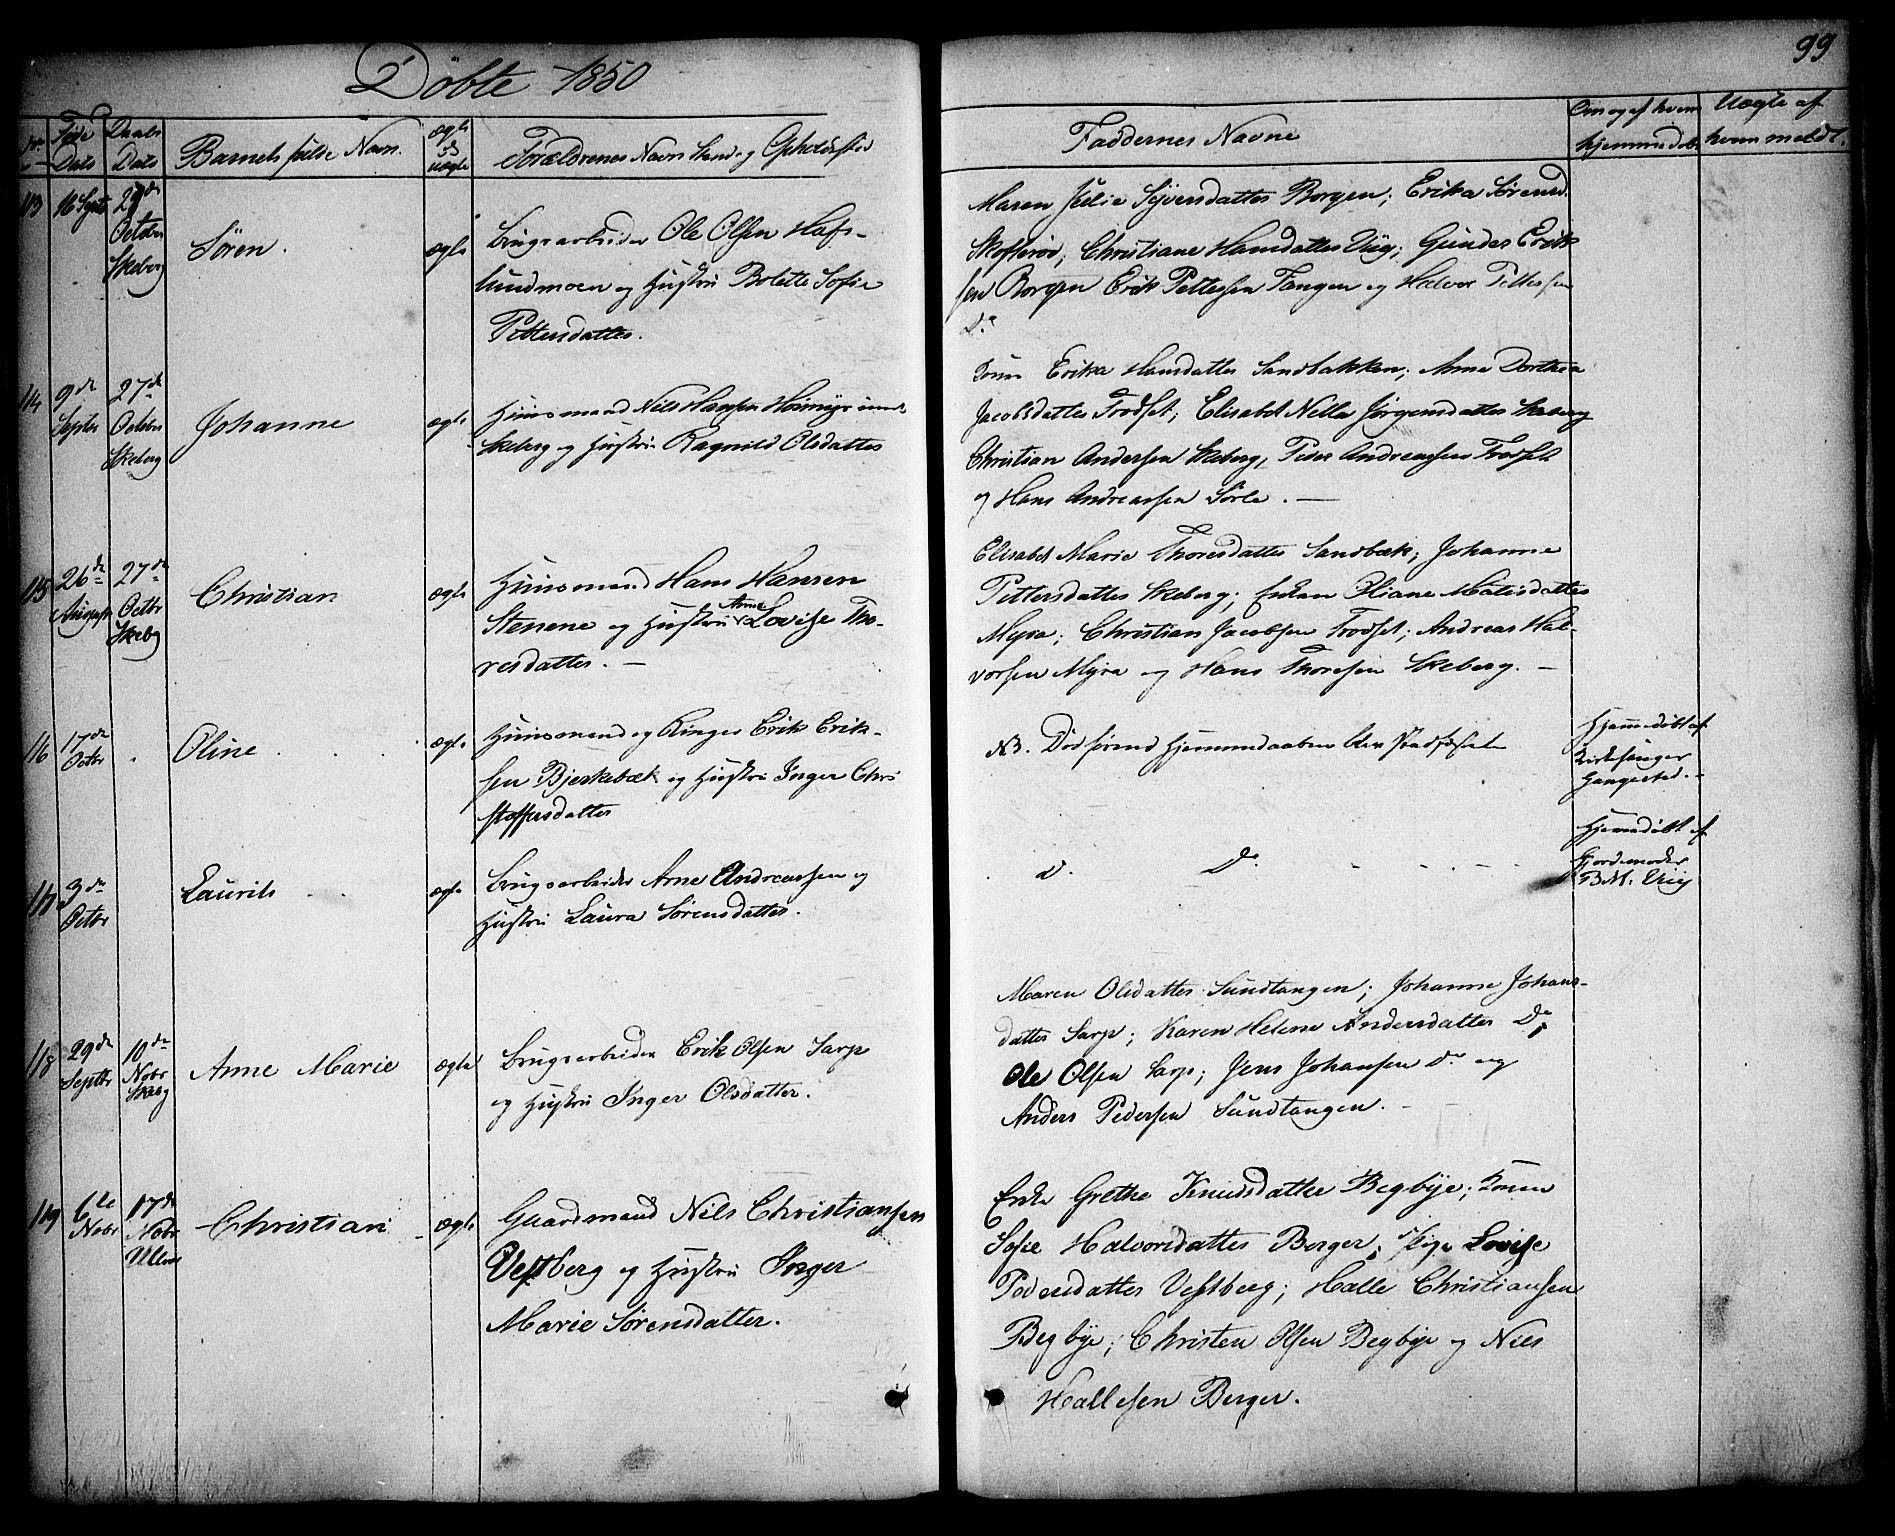 Döbte 1850
99
Føde Dats
Daabs Dats
Barnets fulde Navn.
ægte ell uægte
Forældrenes Navn Stand og Opholdssted
Faddernes Navne
Om og af hvem hjemmedøbt
Uægte af hvem meldt.
113
16 Septb
29de October Skeberg
Søren.
ægte
Brugsarbeider Ole Olsen Hafs-
lundmoen og Hustru Bolette Sofie
Pettersdatter.
Maren Julie Syversdatter Borgen; Erika Sørensd.
Skofterød; Christiane Hansdatter Viig; Gunder Erik
sen Borgen Erik Pettersen Tangen og Halvor Pettersen
Do
114
9de Septbr
27de October Skeberg
Johanne
ægte
Huusmand Nils Hansen Heimyr under
Skeberg og Hustru Ragnild Olsdatter
Konen Erika Hansdatter Sandbakken; Anne Dorthea
Jacobsdatter Trodset; Elisabet Nella Jørgensdatter Skeberg
Christian Andersen Skeberg, Peder Andreassen Trodset
og Hans Andreassen Sørle. —
115
26de August
27de Octbr Skebg
Christian
ægte
Huusmand Hans Hansen
Stenene og Hustru Anne Lovise Tho-
resdatter. —
Elisabet Marie Thoresdatter Sandbæk; Johanne
Pettersdatter Skeberg; Enken Oliane Matisdatter
Myra; Christian Jacobsen Trodset; Andreas Hal-
vorsen Myra og Hans Thoresen Skeberg. —
116
17de Octbr
Oline
ægte
Huusmand og Ringer Erik Erik-
sen Bjerkebæk og Hustru Inger Chri
stoffersdatter
NB. Død førend Hjemmedaaben blev stadfæstet
Hjemmedøbt af
Kirkesanger
Haugestad.
117
3de Octbr
Laurits
ægte
Brugsarbeider Arne Andreassen og
Hustru Laura Sørensdatter.
D. Do
Hjemmedøbt af
Gjordemoder
B. M. Viig
118
29de Septbr
10de Nobr Skebg
Anne Marie
ægte
Brugsarbeider Erik Olsen Sarp
og Hustru Inger Olsdatter.
Maren Olsdatter Sundtangen; Johanne Johans-
datter Sarp; Karen Helene Andersdatter Do;
Ole Olsen Sarp; Jens Johansen do og
Anders Pedersen Sundtangen. —
119
6te Nobr
17de Nobr Ullerø
Christian
ægte
Gaardmand Nils Christiansen
Vestberg og Hustru Inger
Marie Sørensdatter.
Enke Grethe Knudsdatter Begbye; Konen
Sofie Halvorsdatter Berger; Pige Lovise
Pedersdatter Vestberg; Halle Christiansen
Begbye; Christen Olsen Begbye og Nils
Hallesen Berger.